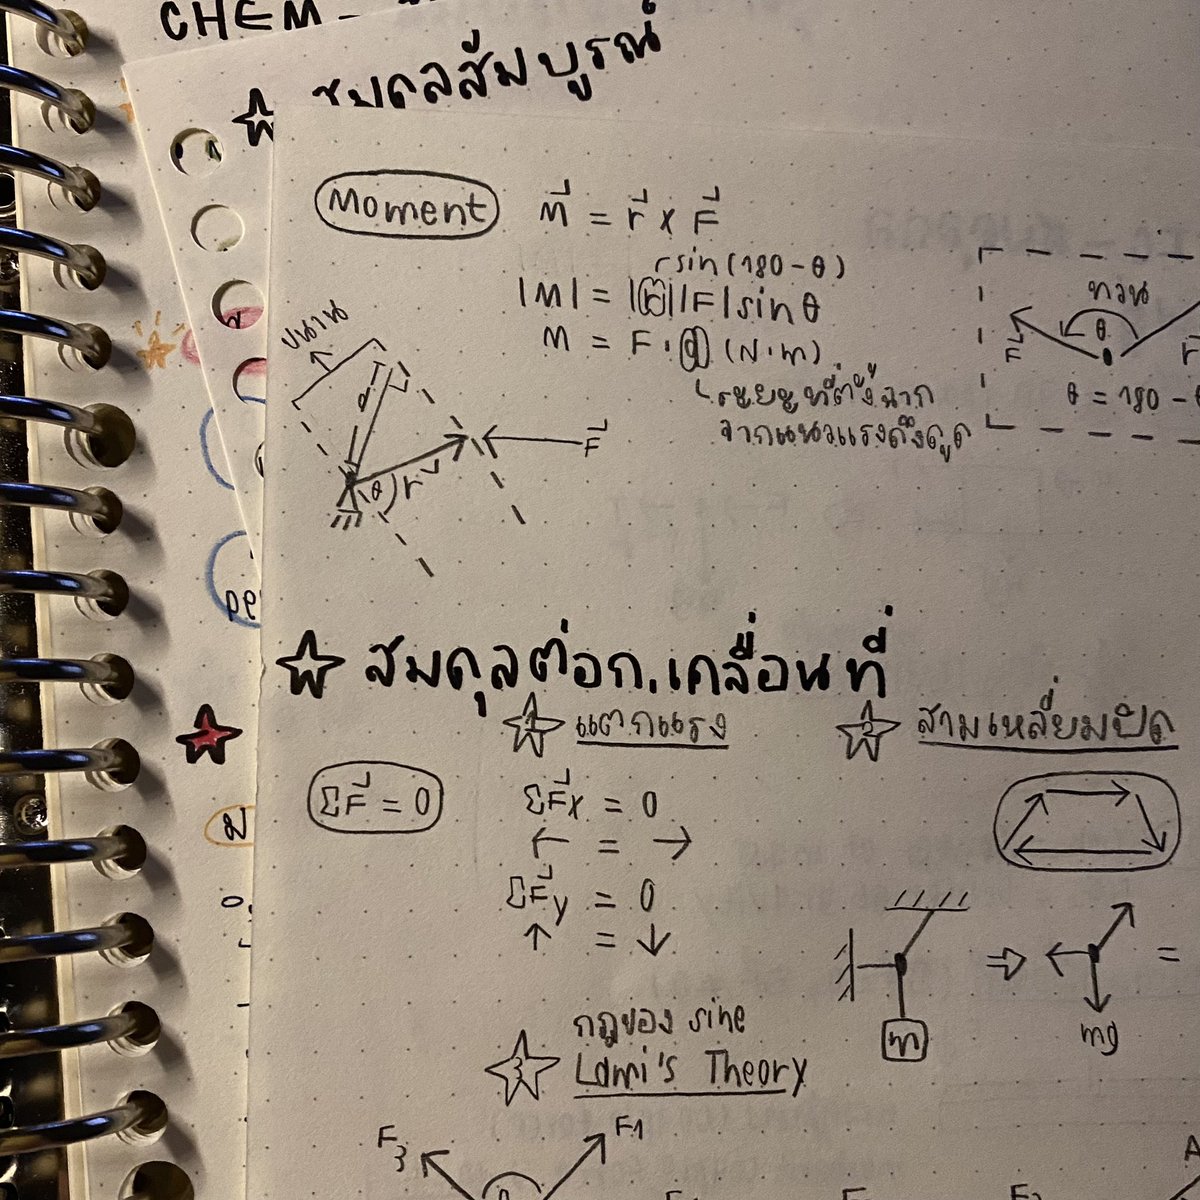 CHEM -
สมดุลสัมบูรณ์
Moment
M = r x F
r sin (180 - θ)
|M| = |r||F| sin θ
M = F · d (N·m)
ระยะที่ตั้งฉาก
จากแนวแรงถึงจุด
ขนาน
d
θ
r
F
ทวน
θ
F
r
θ = 180 -
สมดุลต่อก.เคลื่อนที่
1 แตกแรง
2 สามเหลี่ยมปิด
ΣF = 0
ΣFx = 0
← = →
ΣFy = 0
↑ = ↓
m
⇒
=
mg
กฎของ sine
3 Lami's Theory
F3
F1